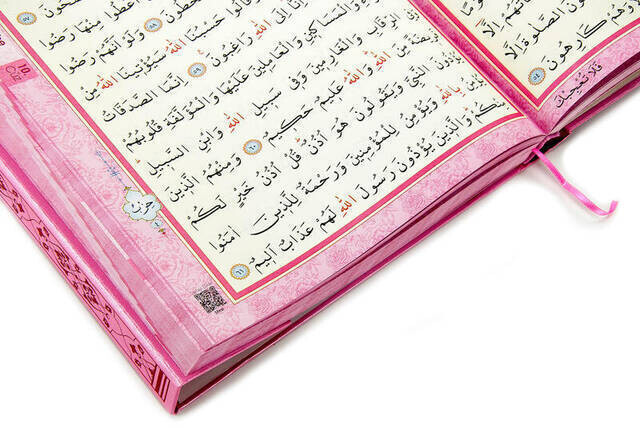 وَلَا يُنْفِقُونَ اِلَّا
وَهُمْ كَارِهُونَ ٥٤
فَلَا تُعْجِبْكَ
اُعْطُوا مِنْهَا رَضُوا
٥٨ وَلَوْ اَنَّهُمْ رَضُوا
وَقَالُوا حَسْبُنَا اللّٰهُ سَيُؤْتِينَا اللّٰهُ مِنْ
اِلَى اللّٰهِ رَاغِبُونَ ٥٩ اِنَّمَا الصَّدَقَاتُ
وَالْمَسَاكِينِ وَالْعَامِلِينَ عَلَيْهَا وَالْمُؤَلَّفَةِ قُلُوبُهُمْ
الرِّقَابِ وَالْغَارِمِينَ وَفِى سَبِيلِ اللّٰهِ وَابْنِ السَّبِيلِ
مِنَ اللّٰهِ وَاللّٰهُ عَلِيمٌ حَكِيمٌ ٦٠ وَمِنْهُمُ الَّذِينَ
يُؤْذُونَ النَّبِىَّ وَيَقُولُونَ هُوَ اُذُنٌ قُلْ اُذُنُ خَيْرٍ لَكُمْ
بِاللّٰهِ وَيُؤْمِنُ لِلْمُؤْمِنِينَ وَرَحْمَةٌ لِلَّذِينَ اٰمَنُوا
مِنْكُمْ وَالَّذِينَ يُؤْذُونَ رَسُولَ اللّٰهِ لَهُمْ عَذَابٌ اَلِيمٌ ٦١
10. CÜZ
حزب